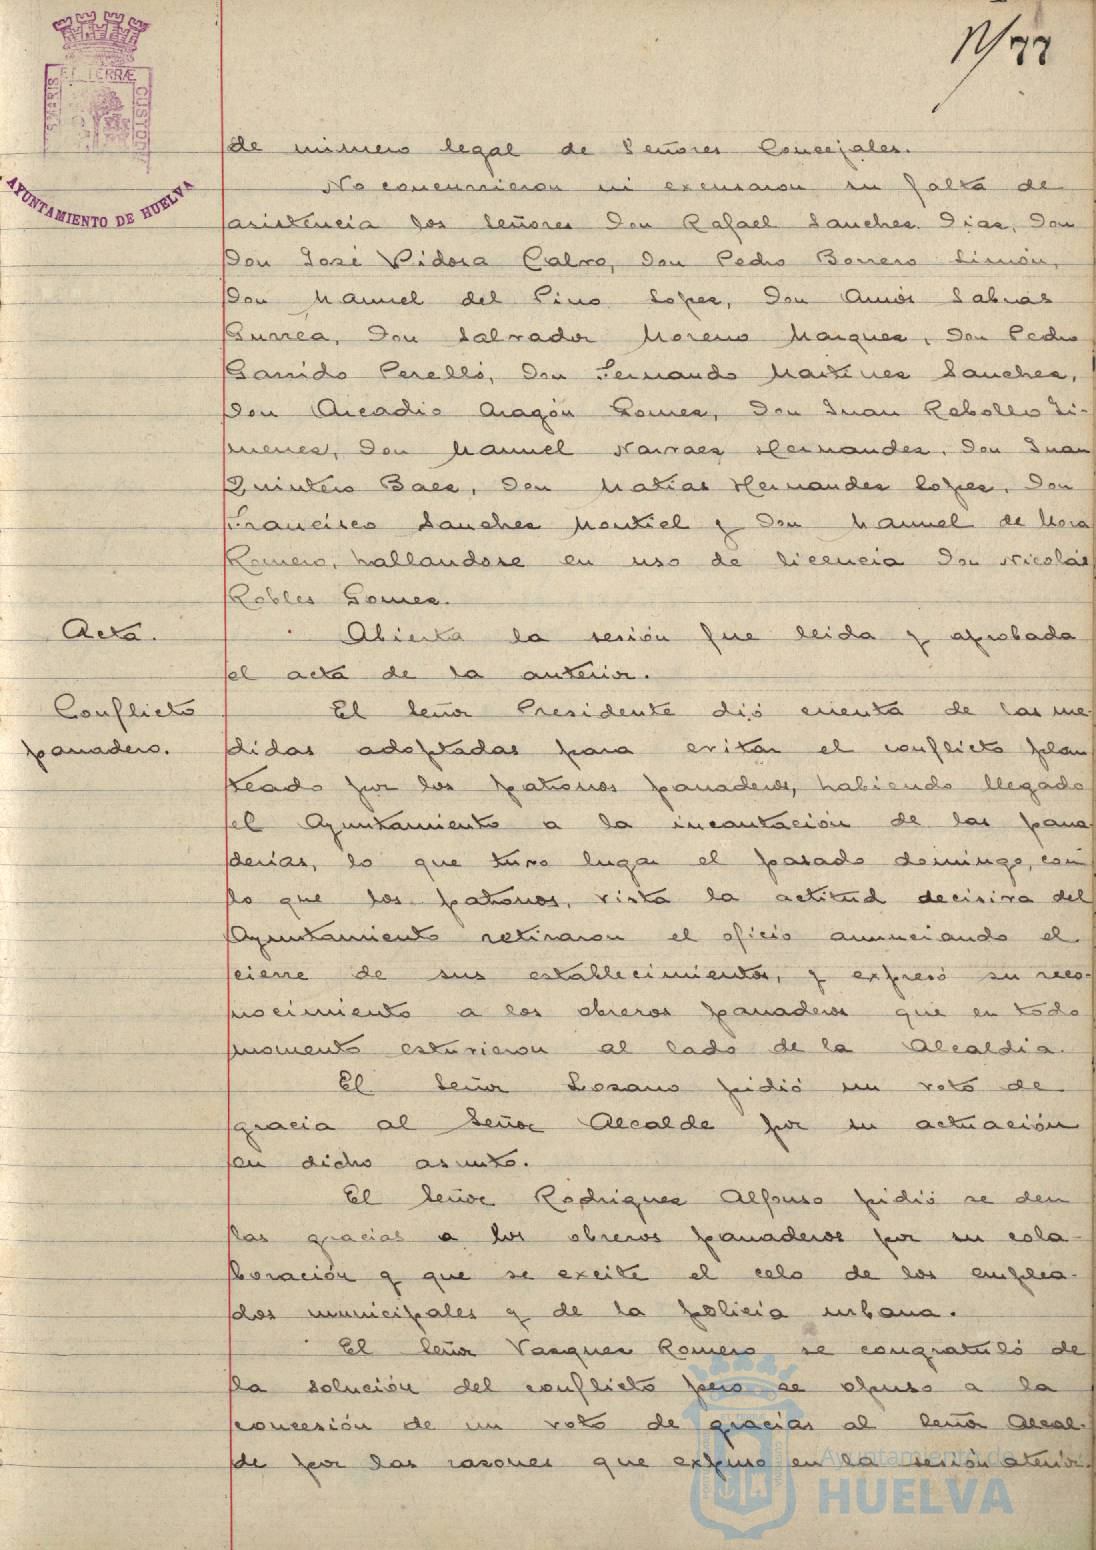 N/77
S MARIS ET TERRÆ CUSTODIA
AYUNTAMIENTO DE HUELVA
de número legal de Señores Concejales.
No concurrieron ni excusaron su falta de
asistencia los Señores Don Rafael Sanchez Diaz, Don
Don José Vidosa Calvo, Don Pedro Borrero Limón,
Don Manuel del Pino Lopez, Don Amós Sabrás
Gurrea, Don Salvador Moreno Marquez, Don Pedro
Garrido Perelló, Don Fernando Martinez Sanchez,
Don Arcadio Aragón Gomez, Don Juan Rebollo Ji-
menez, Don Manuel Narvaez Hernandez, Don Juan
Quintero Baez, Don Matias Hernandez Lopez, Don
Francisco Sanchez Montiel y Don Manuel de Mora
Romero, hallandose en uso de licencia Don Nicolás
Robles Gomez.
Acta.
Abierta la sesión fue leida y aprobada
el acta de la anterior.
Conflicto
panadero.
El Señor Presidente dió cuenta de las me-
didas adoptadas para evitar el conflicto plan
teado por los patronos panaderos, habiendo llegado
el Ayuntamiento a la incautación de las pana
derias, lo que tuvo lugar el pasado domingo, con
lo que los patronos, vista la actitud decisiva del
Ayuntamiento retiraron el oficio anunciando el
cierre de sus establecimientos, y expresó su reco-
nocimiento a los obreros panaderos que en todo
momento estuvieron al lado de la Alcaldia.
El Señor Lozano pidió un voto de
gracia al Señor Alcalde por su actuación
en dicho asunto.
El Señor Rodriguez Alfonso pidió se den
las gracias a los obreros panaderos por su cola-
boración y que se excite el celo de los emplea-
dos municipales y de la policia urbana.
El Señor Vazquez Romero se congratuló de
la solución del conflicto pero se opuso a la
concesión de un voto de gracias al Señor Alcal-
de por las razones que expuso en la sesión aterior.
Ayuntamiento de
HUELVA